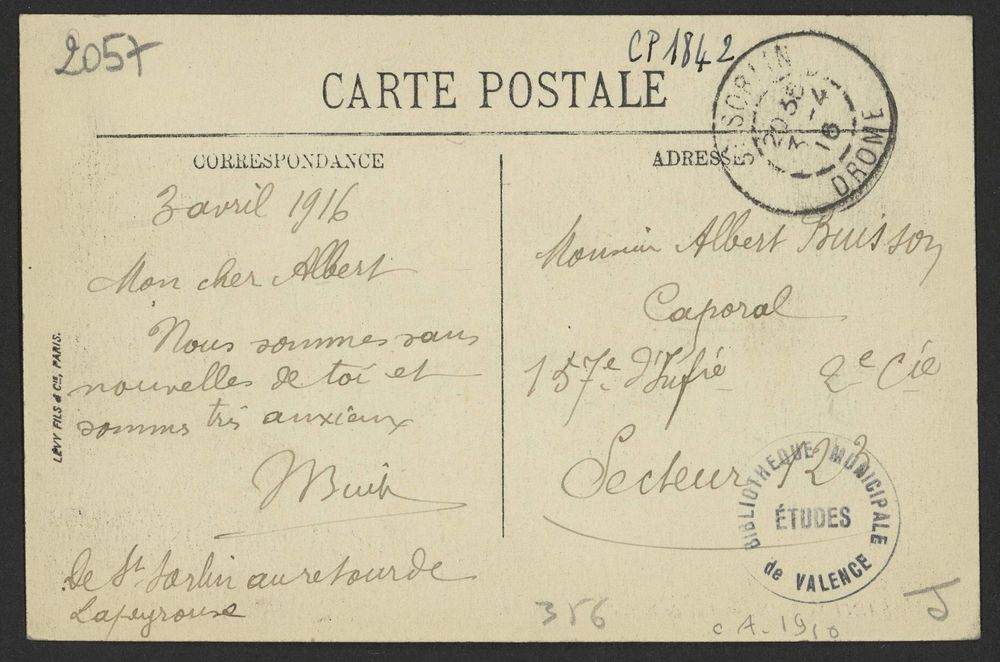 2057
CP 1842
CARTE POSTALE
ST SORLIN
20 30
3 - 4
16
DROME
CORRESPONDANCE
ADRESSE
3 avril 1916
Mon cher Albert
Nous sommes sans
nouvelles de toi et
sommes très anxieux
De St Sorlin au retour de
Lapeyrouse
LÉVY FILS & Cie, PARIS.
Monsieur Albert Buisson
Caporal
157e d'Infie 2e Cie
Secteur 123
BIBLIOTHEQUE MUNICIPALE
ÉTUDES
de VALENCE
356
cA-1910